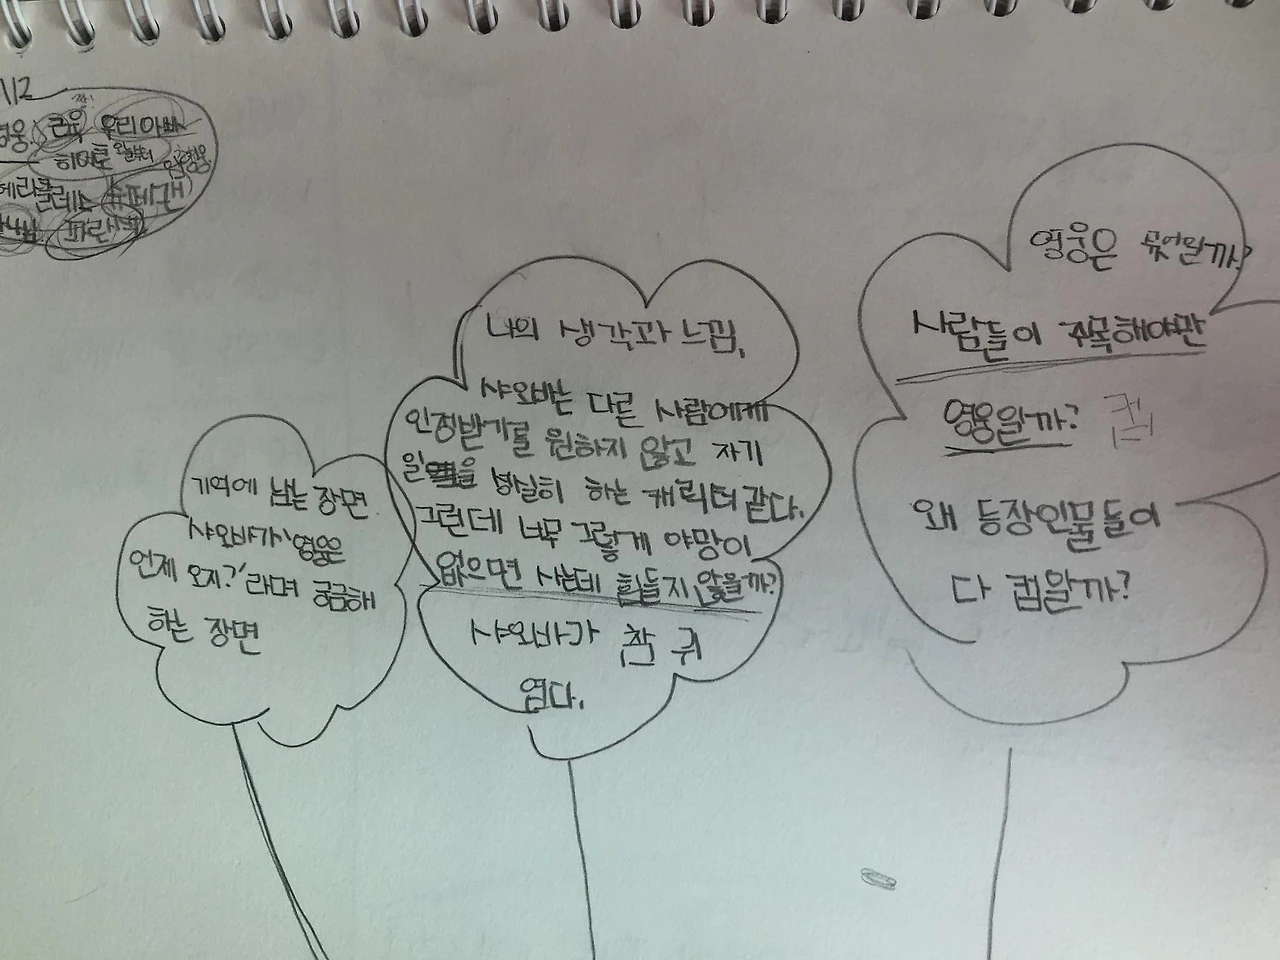 112
영웅. 근육 우리아빠
히어로
헤라클레스 슈퍼맨
파란색
기억에 남는 장면
샤오바가 '영웅은
언제 오지?'라며 궁금해
하는 장면
나의 생각과 느낌.
샤오바는 다른 사람에게
인정받기를 원하지 않고 자기
일을 성실히 하는 캐릭터 같다.
그런데 너무 그렇게 야망이
없으면 사는데 힘들지 않을까?
샤오바가 참 귀
엽다.
영웅은 무엇일까?
사람들이 주목해야만
영웅일까? 컵
왜 등장인물들이
다 컵일까?